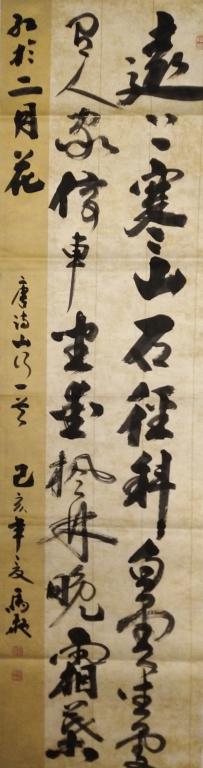 遠上寒山石徑斜白雲生處
有人家停車坐愛楓林晚霜葉
紅於二月花
唐詩山行一首 己亥年夏